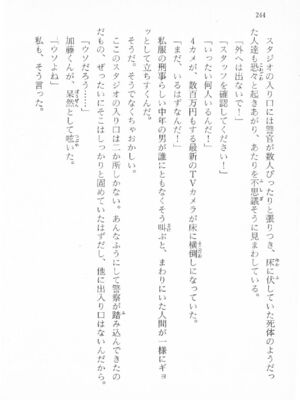 264
スタジオの入り口には警官が数人ぴったりと張りつき、床に伏していた死体のようだっ
た人達も恐々と起きあがり、あたりを不思議そうに見まわしている。
「外へは出ないで！」
「スタッフを確認してください！」
「いったい何人いるんだ！」
4カメが、数百万円もする最新のTVカメラが床に横倒しになっていた。
「まだ、いるはずなんだ！」
私服の刑事らしい中年の男が誰にともなくそう叫ぶと、まわりにいた人間が一様にギョ
ッとして立ちすくんだ。
そうだ。そうでなくちゃおかしい。
ここのスタジオの入り口は二か所しかない。あんなふうにして警察が踏み込んできたの
だもの、ぜったいにそこはしっかりと固めていたはずだし、他に出入り口はないんだから。
「ウソだろう……」
加藤くんが、呆然として呟いた。
「ウソよね」
私も、そう言った。